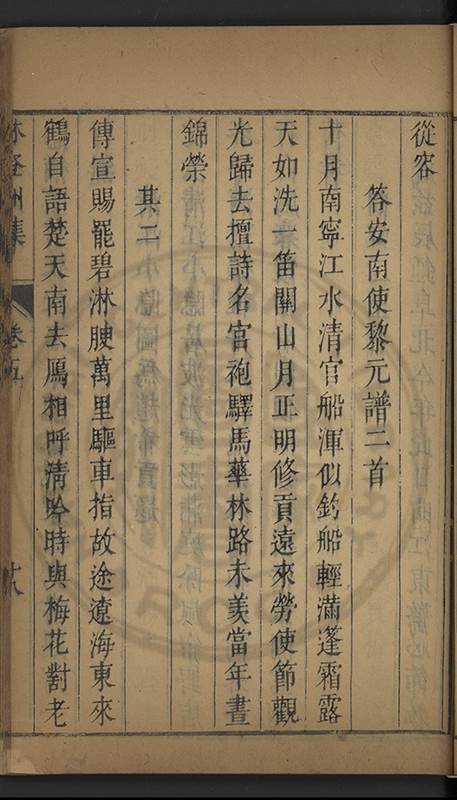 從容
答安南使黎元譜二首
十月南寧江水清官船渾似釣船輕滿蓬霜露
天如洗一笛關山月正明修貢遠來勞使節觀
光歸去擅詩名宮袍驛馬華林路未羡當年晝
錦榮
其二
傳宣賜罷碧淋腴萬里驅車指故途遼海東來
鶴自語楚天南去鴈相呼淸吟時與梅花對老
集 卷五 十八